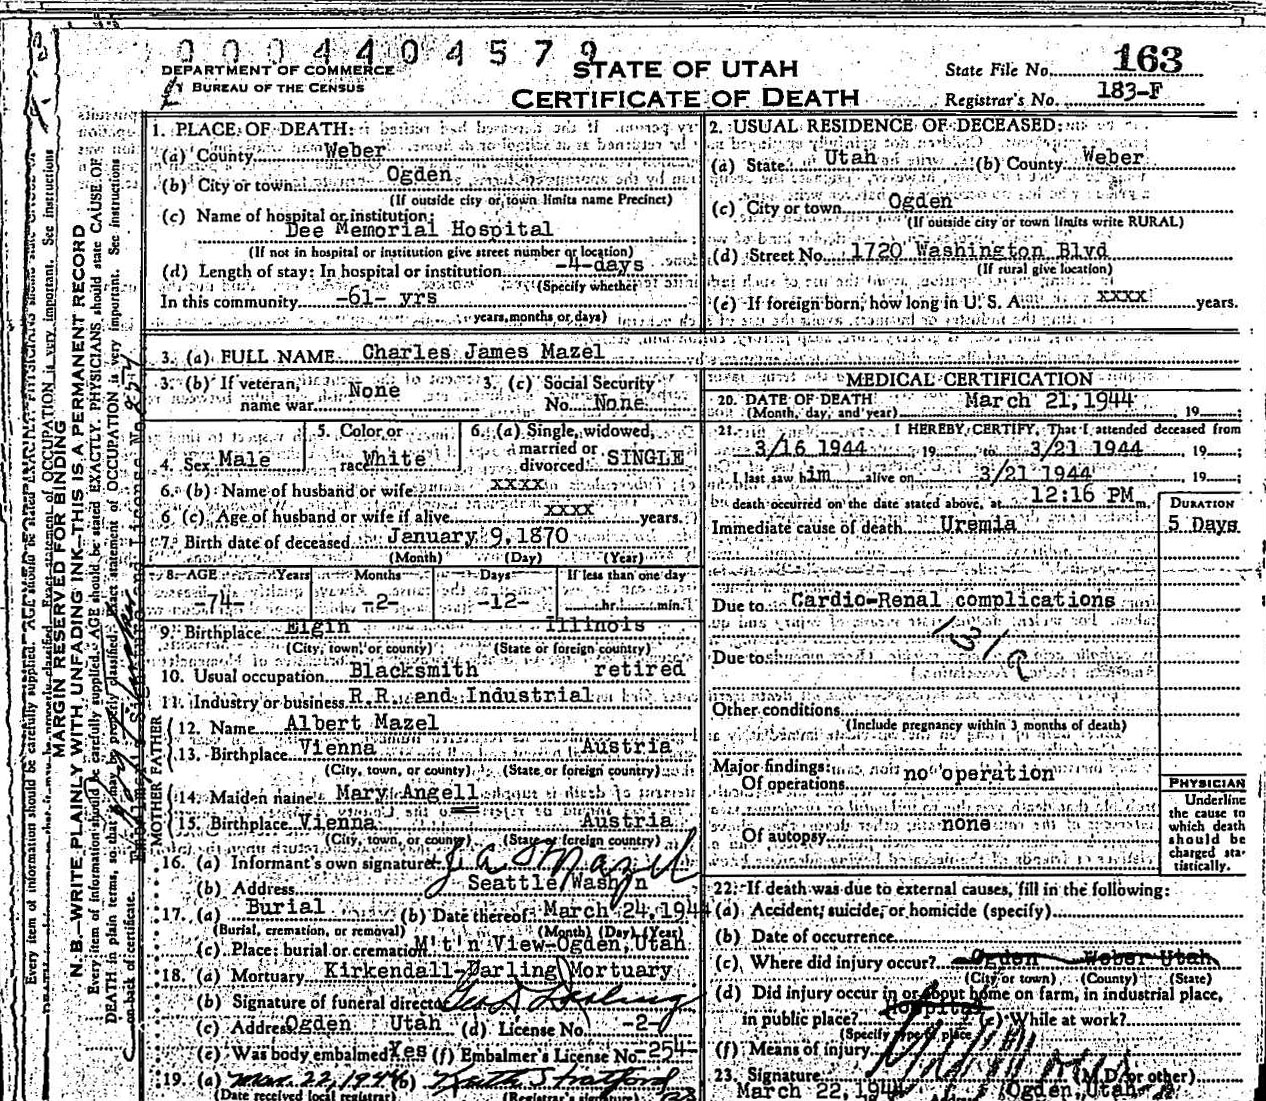 0004404579
DEPARTMENT OF COMMERCE
BUREAU OF THE CENSUS
STATE OF UTAH
CERTIFICATE OF DEATH
State File No. 163
Registrar's No. 183-F
MARGIN RESERVED FOR BINDING
N. B.—WRITE PLAINLY WITH UNFADING INK—THIS IS A PERMANENT RECORD
Every item of information should be carefully supplied. AGE should be stated EXACTLY. PHYSICIANS should state CAUSE OF
DEATH in plain terms, so that it may be properly classified. Exact statement of OCCUPATION is very important. See instructions
on back of certificate.
1. PLACE OF DEATH:
(a) County Weber
(b) City or town Ogden
(If outside city or town limits name Precinct)
(c) Name of hospital or institution:
Dee Memorial Hospital
(If not in hospital or institution give street number or location)
(d) Length of stay: In hospital or institution -4-days
(Specify whether
In this community -61- yrs
years, months or days)
2. USUAL RESIDENCE OF DECEASED:
(a) State Utah (b) County Weber
(c) City or town Ogden
(If outside city or town limits write RURAL)
(d) Street No. 1720 Washington Blvd
(If rural give location)
(e) If foreign born, how long in U. S. A. xxxx years.
3. (a) FULL NAME Charles James Mazel
3. (b) If veteran, name war None 3. (c) Social Security No. None
4. Sex Male 5. Color or race White 6. (a) Single, widowed, married or divorced SINGLE
6. (b) Name of husband or wife xxxx
6 (c) Age of husband or wife if alive xxxx years.
7. Birth date of deceased January 9, 1870
(Month) (Day) (Year)
8. AGE Years Months Days If less than one day
-74- -2- -12- hr. min.
9. Birthplace Elgin Illinois
(City, town, or county) (State or foreign country)
10. Usual occupation Blacksmith retired
11. Industry or business R.R. and Industrial
FATHER
12. Name Albert Mazel
13. Birthplace Vienna Austria
(City, town, or county) (State or foreign country)
MOTHER
14. Maiden name Mary Angell
15. Birthplace Vienna Austria
(City, town, or county) (State or foreign country)
16. (a) Informant's own signature Mazel
(b) Address Seattle Wash'n
17. (a) Burial (b) Date thereof March 24, 1944
(Burial, cremation, or removal) (Month) (Day) (Year)
(c) Place: burial or cremation M't'n View-Ogden, Utah
18. (a) Mortuary Kirkendall-Darling Mortuary
(b) Signature of funeral director Geo Darling
(c) Address Ogden Utah (d) License No. -2-
(e) Was body embalmed Yes (f) Embalmer's License No. -254-
19. (a) Mar. 22, 1944 (b) Ruth Stratford
(Date received local registrar) (Registrar's signature)
MEDICAL CERTIFICATION
20. DATE OF DEATH March 21, 1944
(Month, day, and year) , 19 ;
21. I HEREBY CERTIFY, That I attended deceased from
3/16 1944 , 19 to 3/21 1944 , 19 ;
I last saw him alive on 3/21 1944 , 19 ;
death occurred on the date stated above, at 12:16 PM m.
DURATION
Immediate cause of death Uremia 5 Days
Due to Cardio-Renal complications
131a
Due to
Other conditions
(Include pregnancy within 3 months of death)
Major findings:
Of operations no operation
Of autopsy none
PHYSICIAN
Underline
the cause to
which death
should be
charged sta-
tistically.
22. If death was due to external causes, fill in the following:
(a) Accident, suicide, or homicide (specify)
(b) Date of occurrence
(c) Where did injury occur? Ogden Weber Utah
(City or town) (County) (State)
(d) Did injury occur in or about home on farm, in industrial place,
in public place? Hospital (e) While at work?
(Specify type of place
(f) Means of injury
23. Signature (M.D. or other)
March 22, 1944 Ogden, Utah